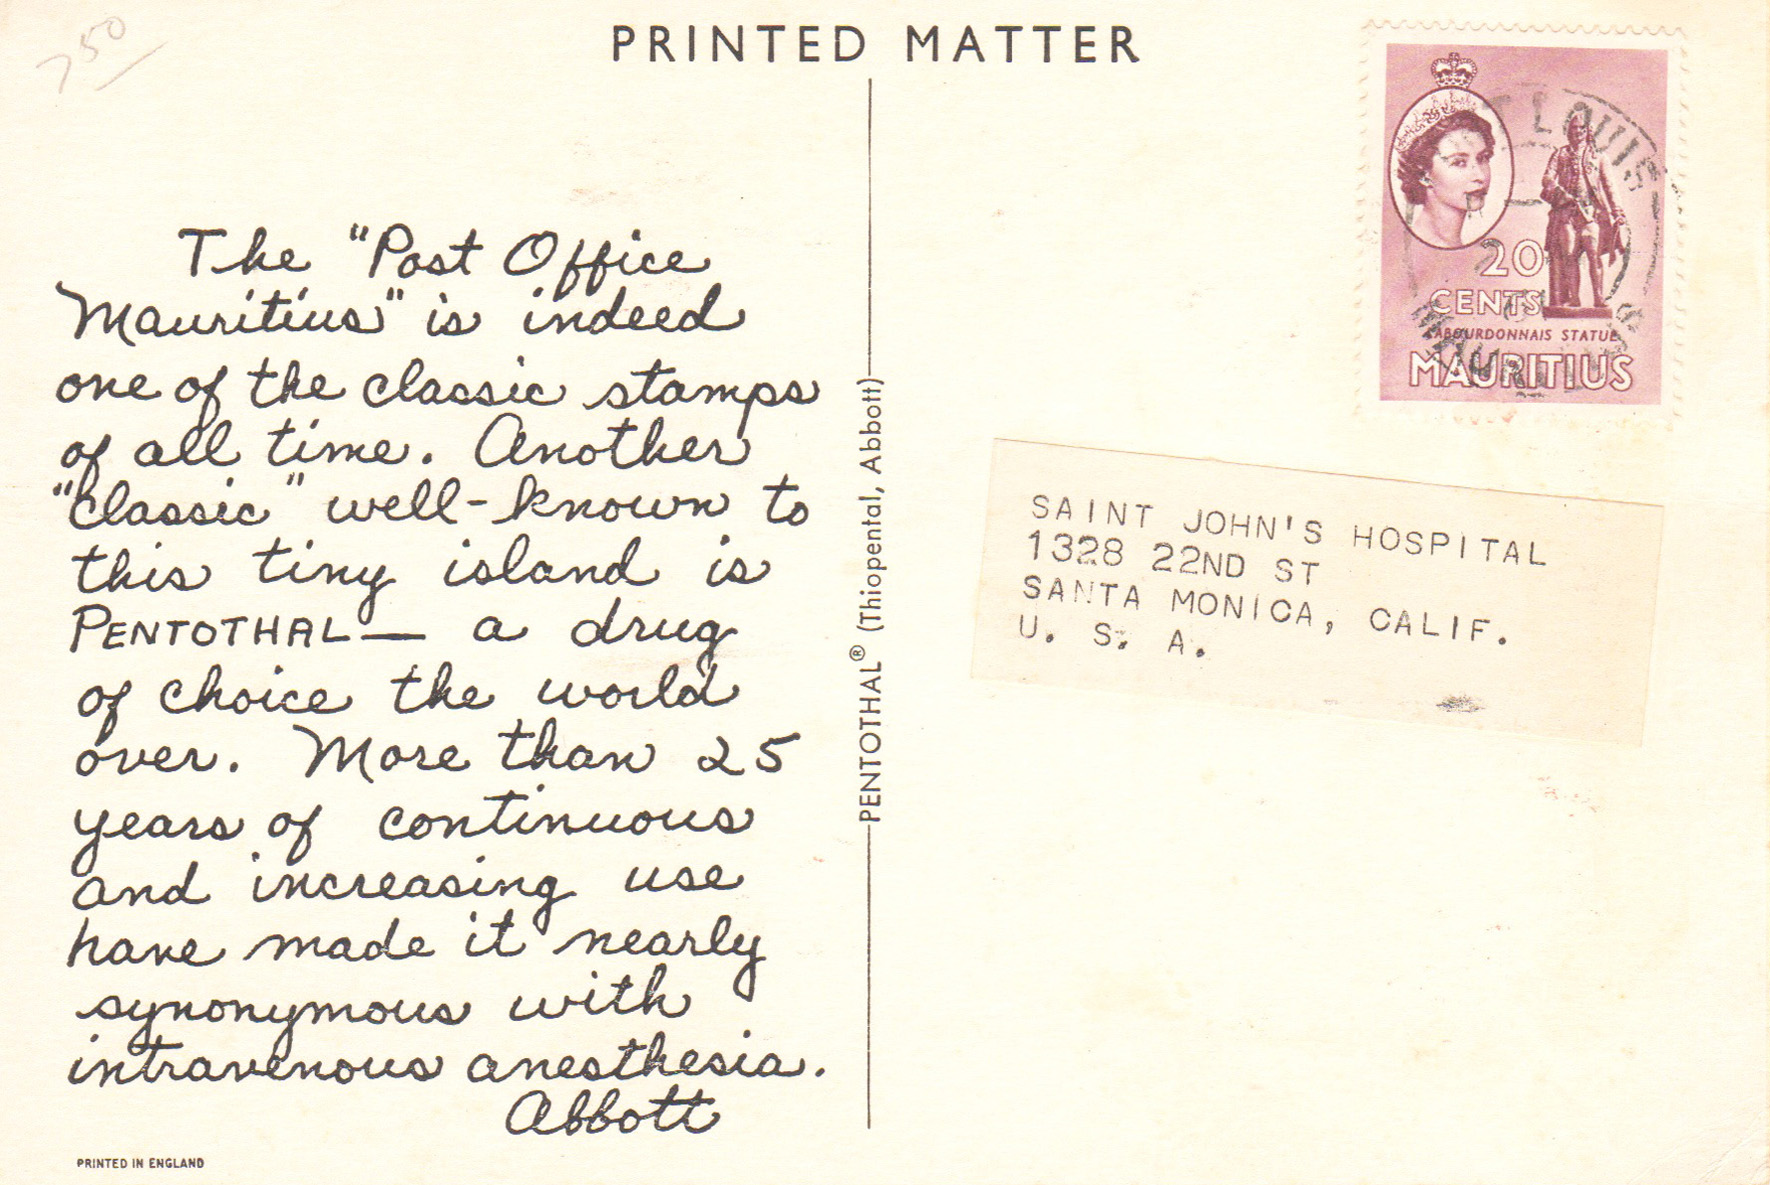 750
PRINTED MATTER
The "Post Office
Mauritius" is indeed
one of the classic stamps
of all time. Another
"classic" well-known to
this tiny island is
PENTOTHAL — a drug
of choice the world
over. More than 25
years of continuous
and increasing use
have made it nearly
synonymous with
intravenous anesthesia.
Abbott
PRINTED IN ENGLAND
PENTOTHAL® (Thiopental, Abbott)
20
CENTS
LABOURDONNAIS STATUE
MAURITIUS
LOUIS
MAURITIUS
SAINT JOHN'S HOSPITAL
1328 22ND ST
SANTA MONICA, CALIF.
U. S. A.